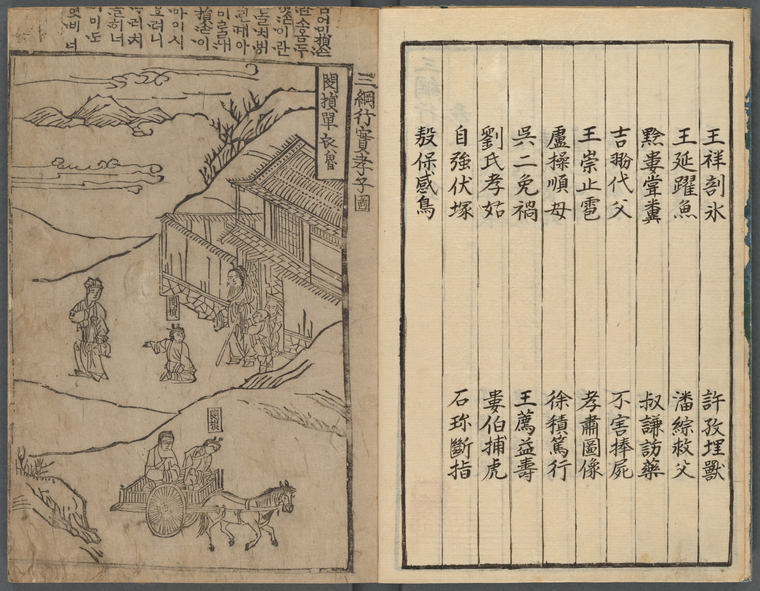 王祥剖氷 許孜埋獸
王延躍魚 潘綜救父
黔婁嘗糞 叔謙訪藥
吉翂代父 不害捧屍
王崇止雹 孝肅圖像
盧操順母 徐積篤行
吳二免禍 王薦益壽
劉氏孝姑 婁伯捕虎
自強伏塚 石珎斷指
殷保感烏
三綱行實孝子圖
閔損單衣魯
閔損
閔損